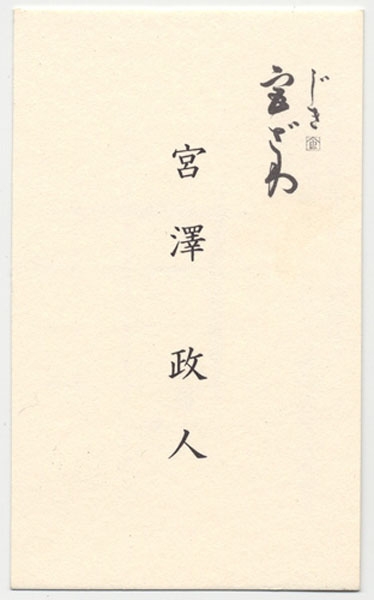 じき
宮ざわ
宮澤 政人